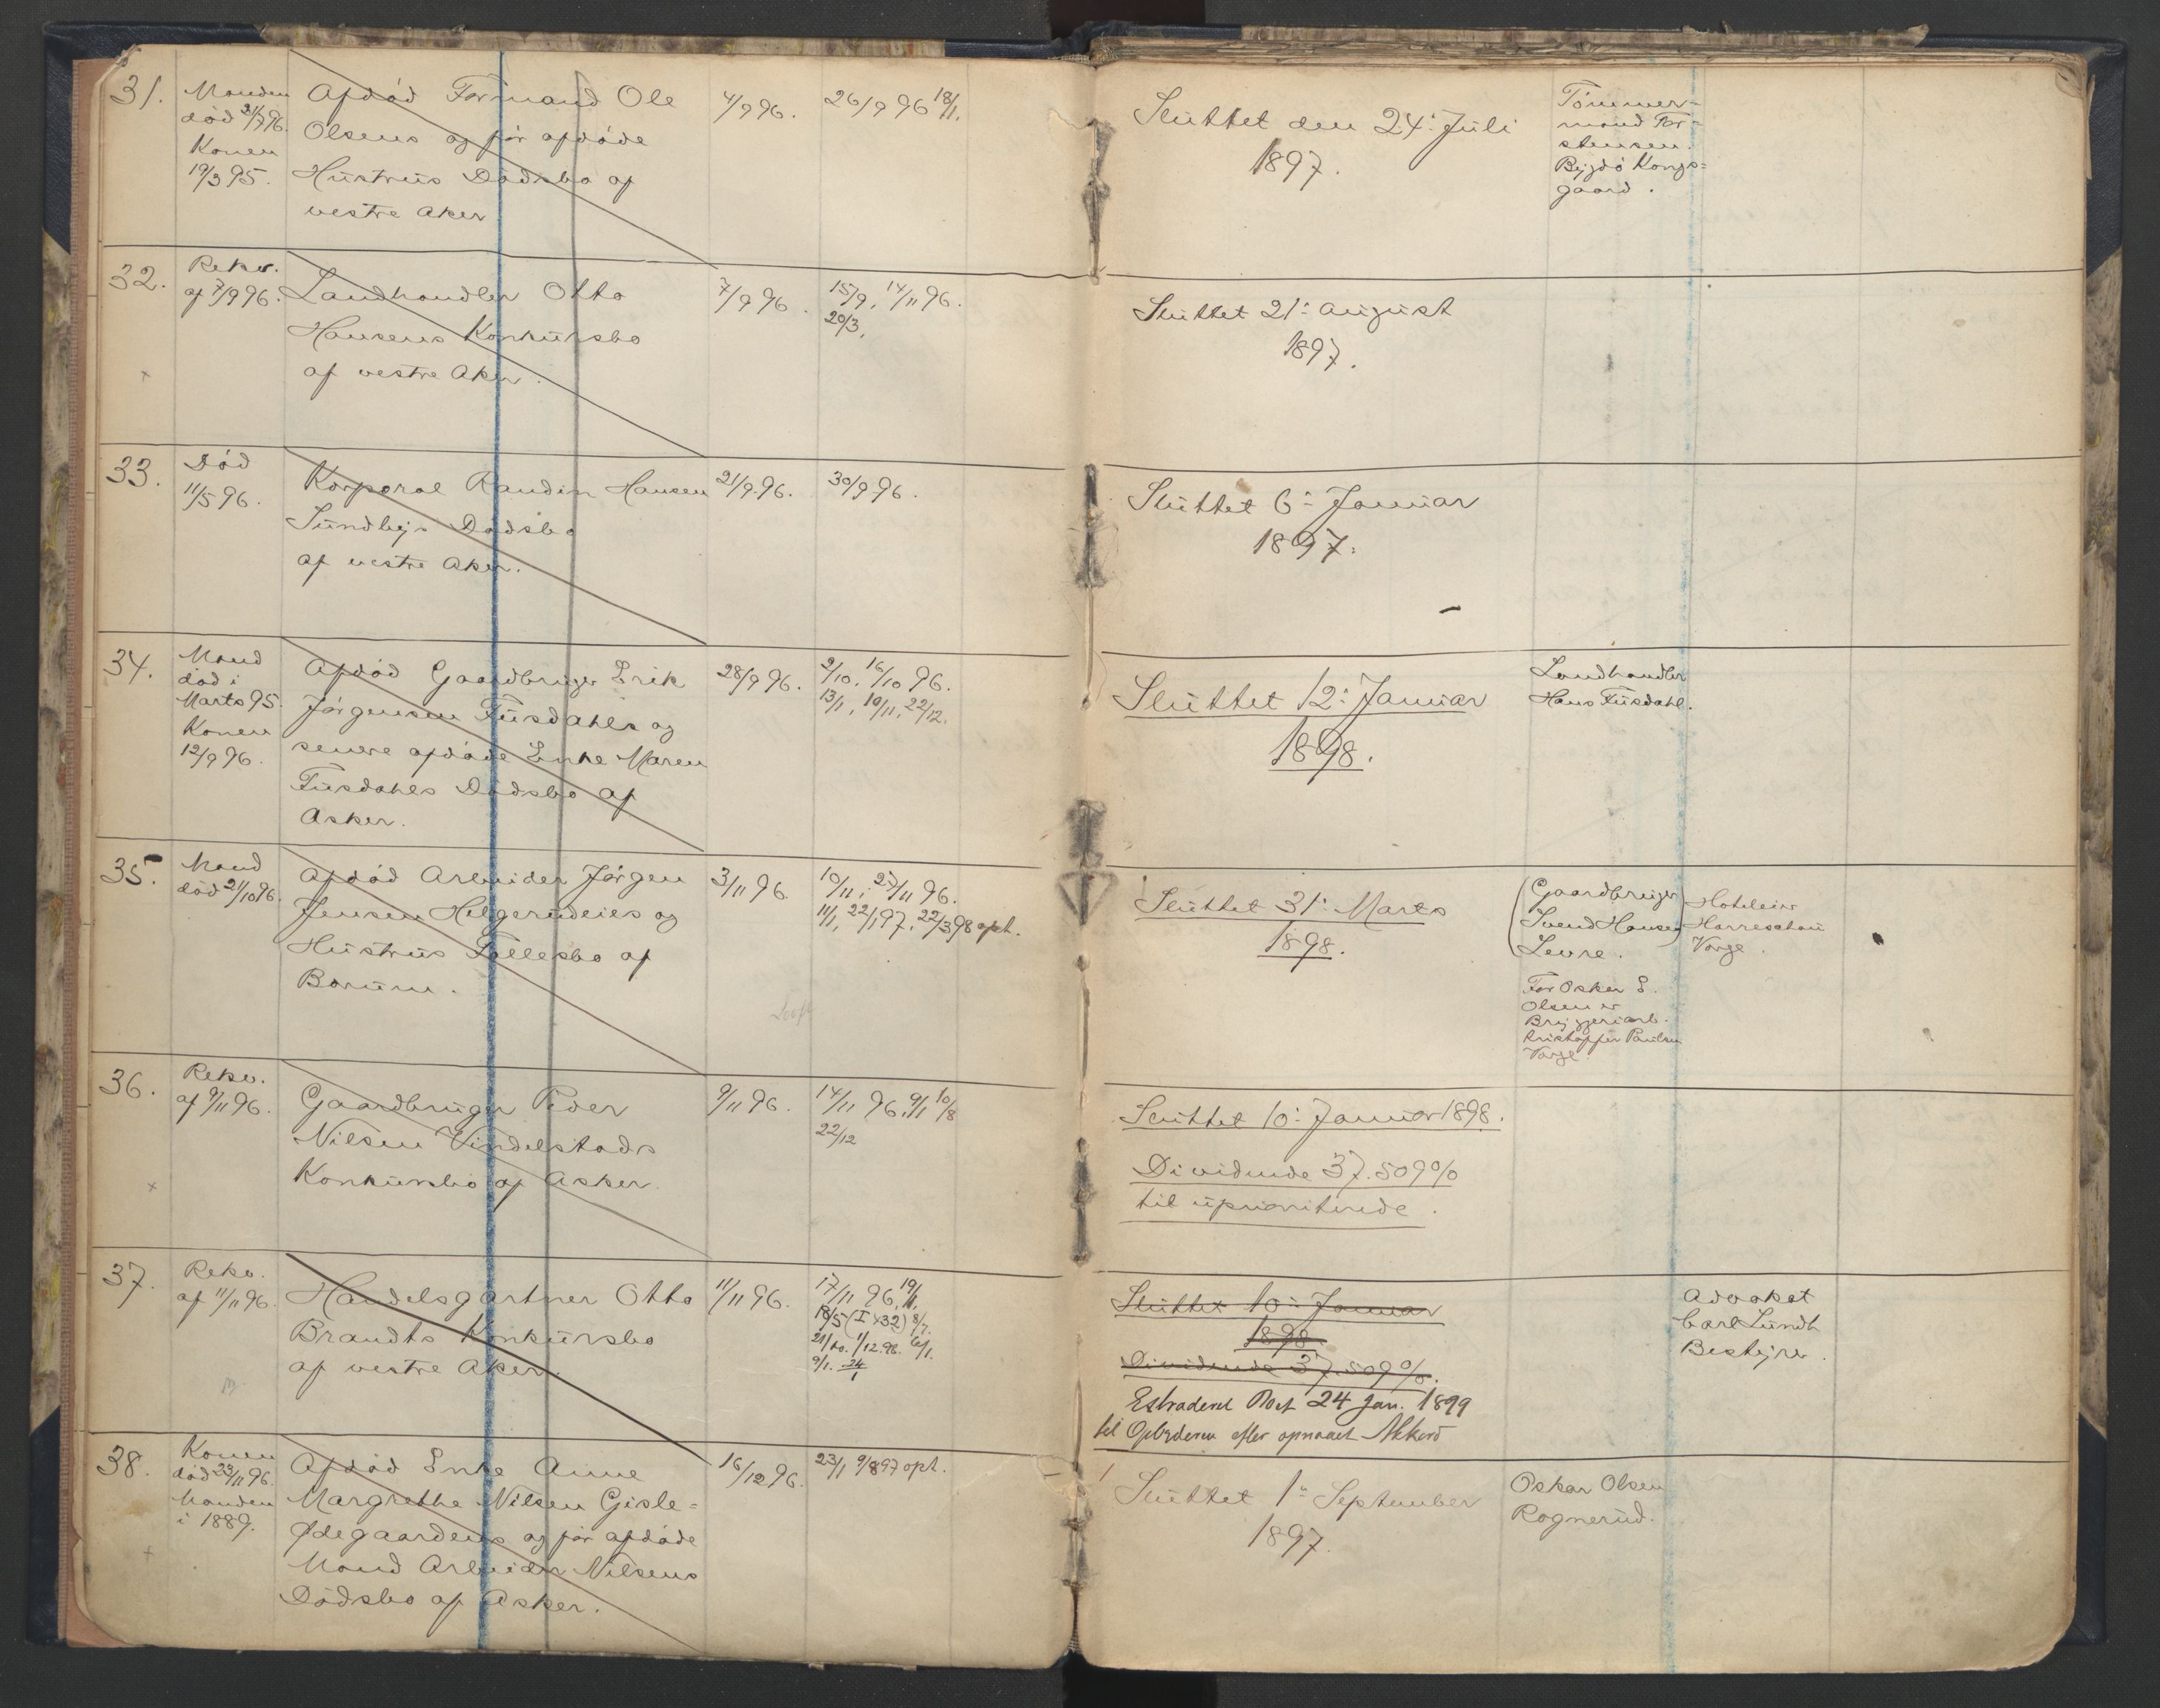 31.
Manden
død 21/7 96.
Konen
19/3 95.
Afdød Formand Ole
Olsens og før afdøde
Hustrus Dødsbo af
vestre Aker
4/9 96.
26/9 96 18/1.
Sluttet den 24: Juli
1897.
Tømmer-
mand Tor-
stensen.
Bygdø Kongs-
gaard.
32.
Rekv.
af 7/9 96.
Landhandler Otto
Hansens Konkursbo
af vestre Aker.
7/9 96.
15/9, 14/11 96.
20/3,
Sluttet 21: August
1897.
33.
Død
11/5 96.
Korporal Randin Hansen
Sundbys Dødsbo
af vestre Aker.
21/9 96.
30/9 96.
Sluttet 6: Januar
1897.
34.
Mand
død i
Marts 95
Konen
12/9 96.
Afdød Gaardbruger Erik
Jørgensen Fusdahls og
senere afdøde Enke Maren
Fusdahls Dødsbo af
Asker.
28/9 96.
2/10, 16/10 96.
13/1, 10/11, 22/12.
Sluttet 12: Januar
1898.
Landhandler
Hans Fusdahl.
35.
Mand
død 21/10 96.
Afdød Arbeider Jørgen
Jensen Helgerudeies og
Hustrus Fællesbo af
Bærum.
3/11 96.
10/11, 27/11 96.
11/1, 22/1 97, 22/3 98 opt.
Sluttet 31: Marts
1898.
(Gaardbruger
Svend Hansen)
Levre.
For Oskar E.
Olsen er
Bryggeriarb.
Kristoffer Paulsen
Værge
Hoteleier
Harreschou
Værge.
36.
Rekv.
af 9/11 96.
Gaardbruger Peder
Nilsen Vindelstads
Konkursbo af Asker.
9/11 96.
14/11 96, 9/1 10/8
22/12
Sluttet 10: Januar 1898.
Dividende 37.509%
til uprioriterede.
37.
Rekv.
af 11/11 96.
Handelsgartner Otto
Brandts Konkursbo
af vestre Aker.
11/11 96.
17/11 96, 19/1,
18/5 (I 432) 8/7.
21/10. 11/12. 96. 6/1.
9/1. 24/1
Sluttet 10: Januar
1898.
Dividende 37.509%.
Estraderet Boet 24 Jan. 1899
til Opbyderen efter opnaaet Akkord
Advokat
Carl Lundh
Bestyrer.
38.
Konen
død 23/11 96.
Manden
i 1889.
Afdød Enke Anne
Margrethe Nilsen Gisle-
Ødegaardens og før afdøde
Mand Arbeider Nilsens
Dødsbo af Asker.
16/12 96.
23/1 9/8 97 opt.
Sluttet 1: September
1897.
Oskar Olsen
Rognerud.